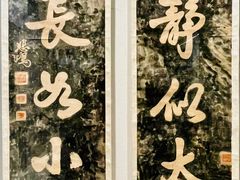 靜似太
長如小